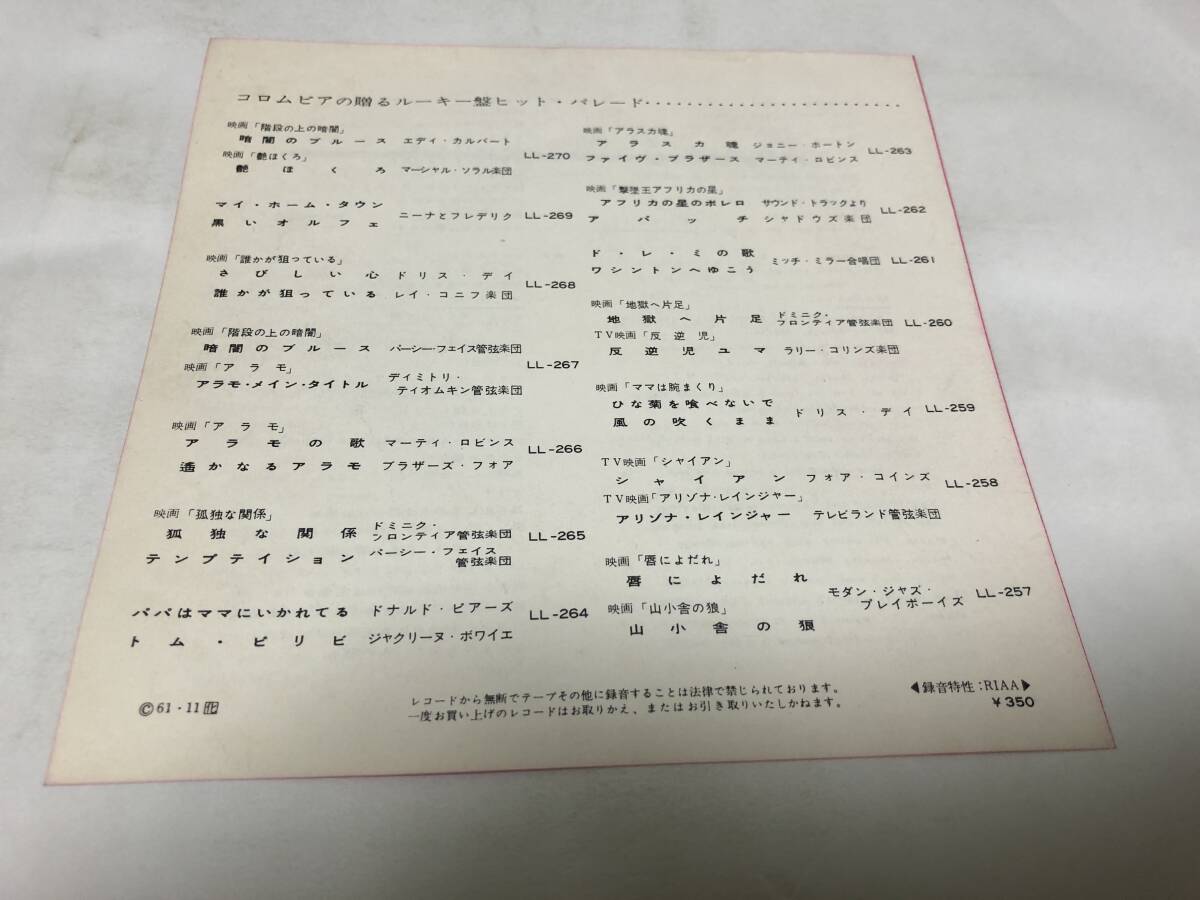 コロムビアの贈るルーキー盤ヒット・パレード・・・・・・・・・・・・・・・・・・・・・・・・
映画「階段の上の暗闇」
暗闇のブルース エディ・カルバート
映画「艶ほくろ」 LL-270
艶ほくろ マーシャル・ソラル楽団
マイ・ホーム・タウン
ニーナとフレデリク LL-269
黒いオルフェ
映画「誰かが狙っている」
さびしい心 ドリス・デイ
LL-268
誰かが狙っている レイ・コニフ楽団
映画「階段の上の暗闇」
暗闇のブルース パーシー・フェイス管弦楽団
映画「アラモ」 LL-267
アラモ・メイン・タイトル ディミトリ・
ティオムキン管弦楽団
映画「アラモ」
アラモの歌 マーティ・ロビンス
LL-266
遙かなるアラモ ブラザーズ・フォア
映画「孤独な関係」
孤独な関係 ドミニク・
フロンティア管弦楽団 LL-265
テンプテイション パーシー・フェイス
管弦楽団
パパはママにいかれてる ドナルド・ピアーズ
LL-264
トム・ピリビ ジャクリーヌ・ボワイエ
映画「アラスカ魂」
アラスカ魂 ジョニー・ホートン
LL-263
ファイヴ・ブラザース マーティ・ロビンス
映画「撃墜王アフリカの星」
アフリカの星のボレロ サウンド・トラックより
LL-262
アパッチ シャドウズ楽団
ド・レ・ミの歌
ミッチ・ミラー合唱団 LL-261
ワシントンへゆこう
映画「地獄へ片足」
地獄へ片足 ドミニク・
フロンティア管弦楽団 LL-260
TV映画「反逆児」
反逆児ユマ ラリー・コリンズ楽団
映画「ママは腕まくり」
ひな菊を喰べないで
ドリス・デイ LL-259
風の吹くまま
TV映画「シャイアン」
シャイアン フォア・コインズ
LL-258
TV映画「アリゾナ・レインジャー」
アリゾナ・レインジャー テレビランド管弦楽団
映画「唇によだれ」
唇によだれ
モダン・ジャズ・
プレイボーイズ LL-257
映画「山小舎の狼」
山小舎の狼
レコードから無断でテープその他に録音することは法律で禁じられております。
一度お買い上げのレコードはお取りかえ、またはお引き取りいたしかねます。
©61・11
◀録音特性:RIAA▶
¥350